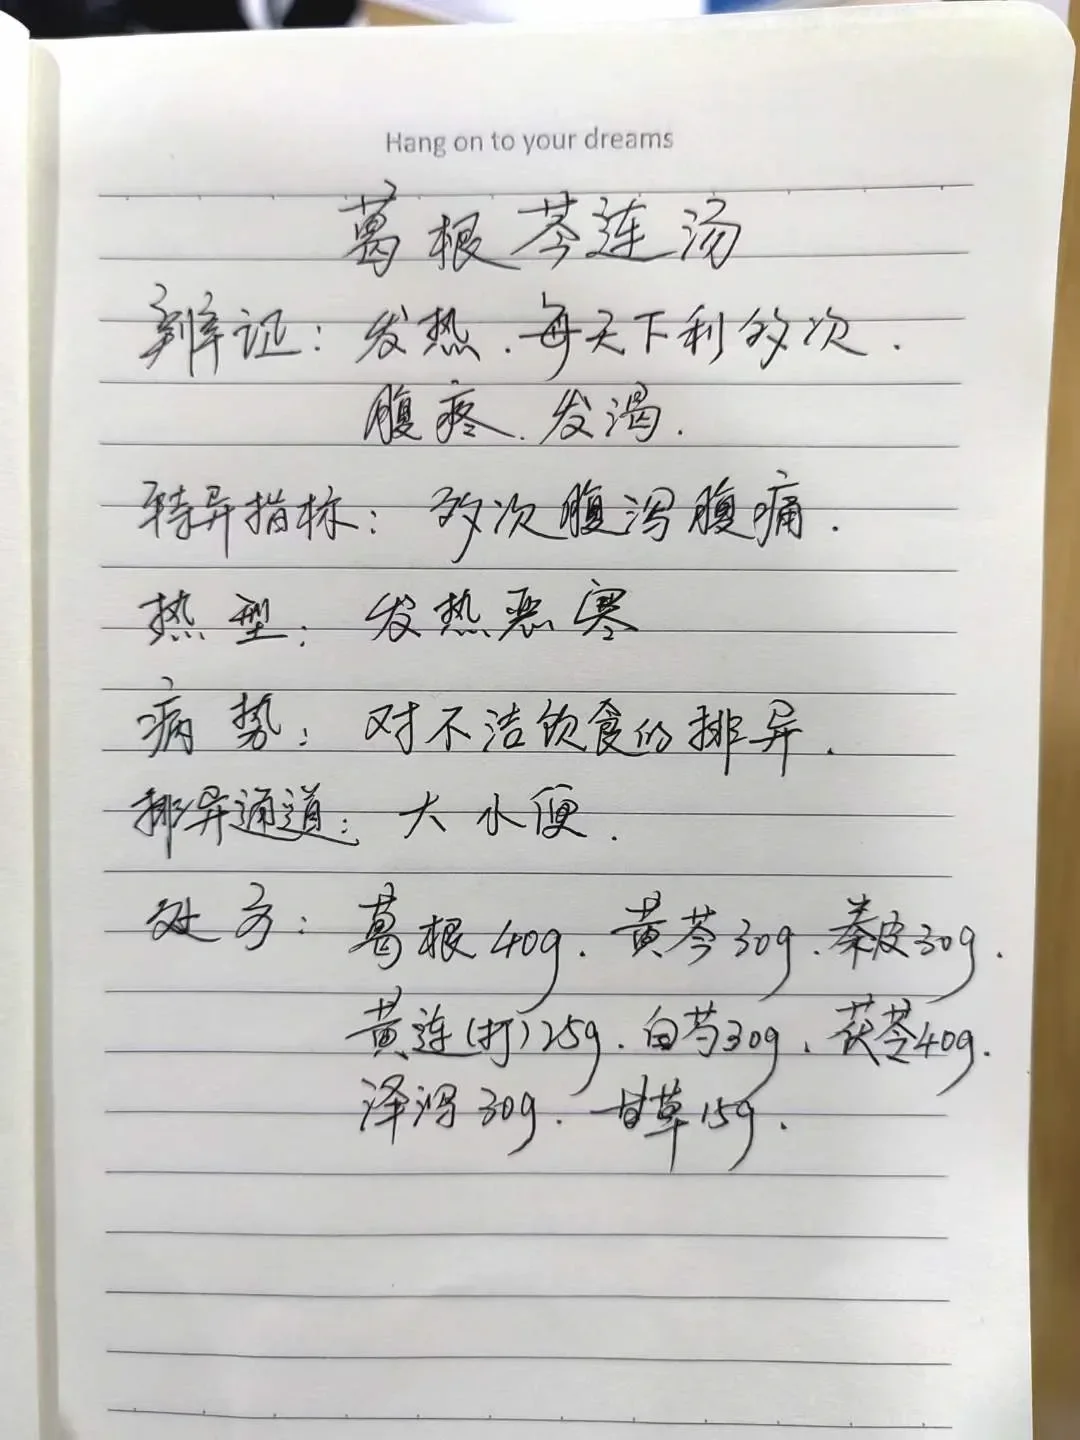 Hang on to your dreams
葛根芩连汤
辨证：发热.每天下利多次.
腹疼.发渴.
特异指标：多次腹泻腹痛.
热型：发热恶寒
病势：对不洁饮食的排异.
排异通道：大水便.
处方：葛根40g.黄芩30g.秦皮30g.
黄连(打)25g.白芍30g.茯苓40g.
泽泻30g.甘草15g.